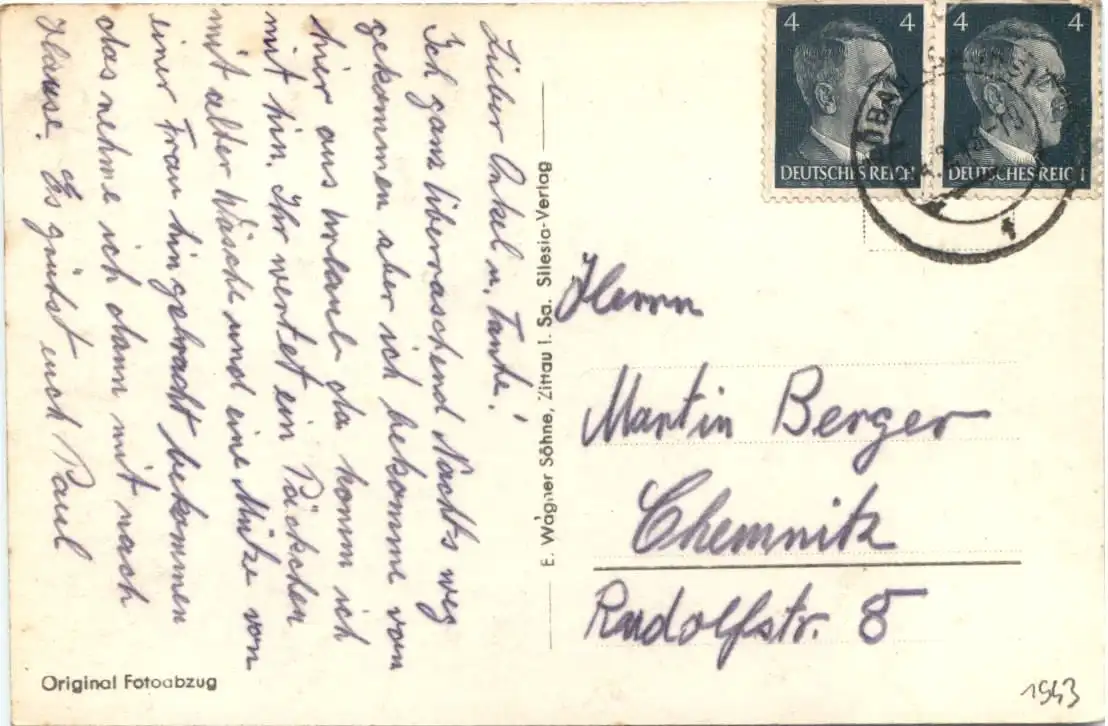 Lieber Onkel u. Tante!
Ich ganz überraschend Nachts weg
gekommen aber ich bekomme von
hier aus urlaub da komm ich
mit hin. Ihr wertet ein Päckchen
mit alter Wäsche und eine Mütze von
einer Frau hin gebracht bekommen
das nehme ich dann mit nach
Hause. Es grüst euch Paul
Original Fotoabzug
E. Wagner Söhne, Zittau i. Sa. Silesia-Verlag
4 4
DEUTSCHES REICH
4 4
DEUTSCHES REICH
Herrn
Martin Berger
Chemnitz
Rudolfstr. 8
1943